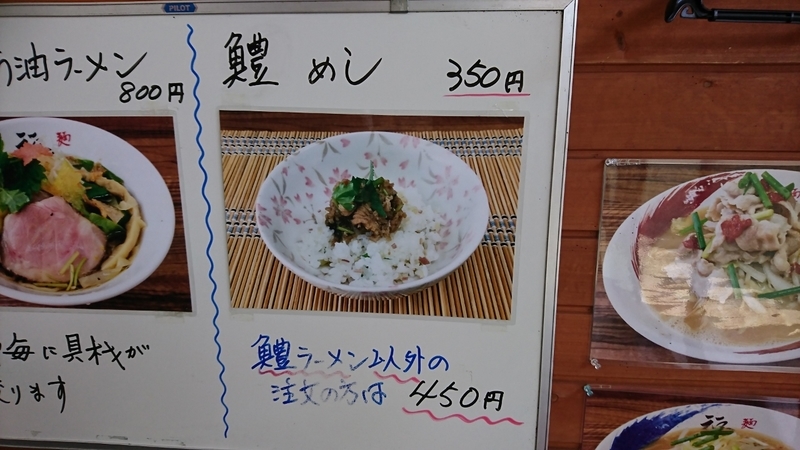 PILOT
油ラーメン
800円
鱧 めし 350円
毎に具材が
ります
鱧ラーメン以外の
注文の方は 450円
麺
麺